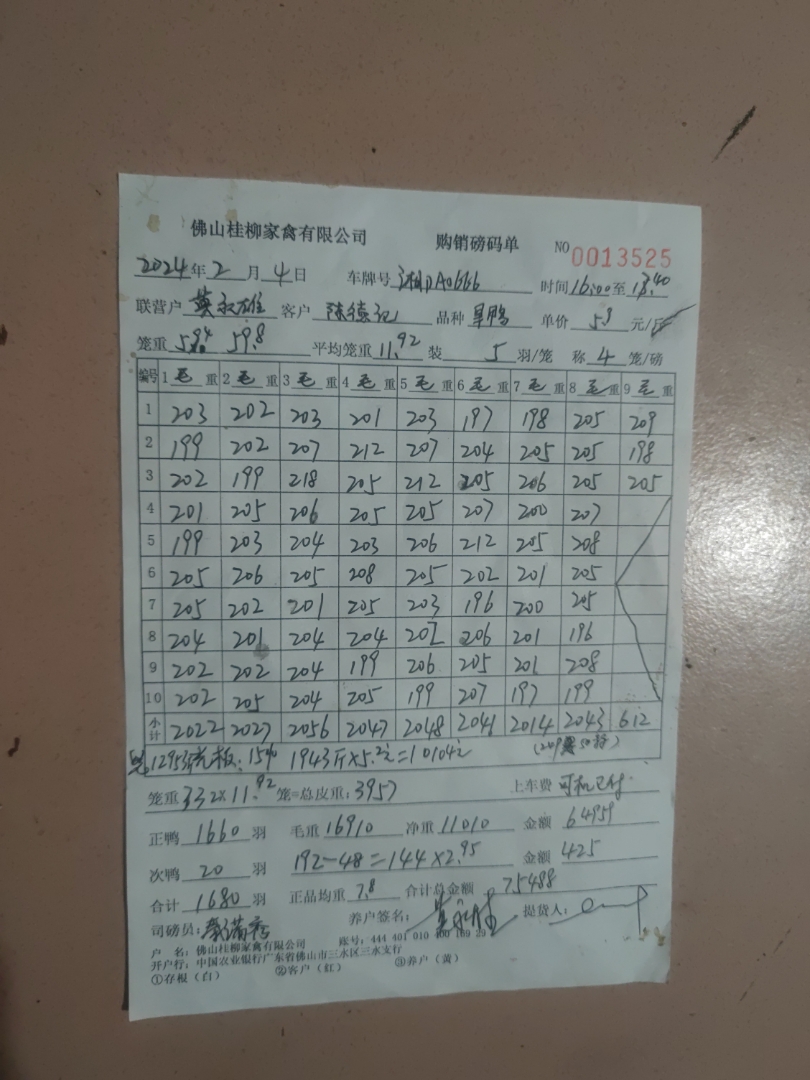 佛山桂柳家禽有限公司 购销磅码单 NO 0013525
2024年2月4日 车牌号 A0666 时间16:00至18:40
联营户 黄永雄 客户 陈德记 品种 旱鸭 单价 5.9 元/斤
笼重 59.4 59.8 平均笼重 11.92 装 5 羽/笼 称 4 笼/磅
编号 1 毛 重 2 毛 重 3 毛 重 4 毛 重 5 毛 重 6 毛 重 7 毛 重 8 毛 重 9 毛 重
1 203 202 203 201 203 197 198 205 209
2 199 202 207 212 207 204 205 205 198
3 202 199 218 205 212 205 206 205 205
4 201 205 206 205 205 207 200 207
5 199 203 204 203 206 212 205 208
6 205 206 205 208 205 202 201 205
7 205 202 201 205 203 196 200 205
8 204 201 204 204 202 206 201 196
9 202 202 204 199 206 205 201 208
10 202 205 204 205 199 207 197 199
小计 2022 2027 2056 2047 2048 2041 2014 2043 612
12953 板: 15% 1943斤×5.2元=10104元
笼重 332×11.92 笼=总皮重: 3957 上车费 司机已付
正鸭 1660 羽 毛重 16910 净重 11010 金额 64959
次鸭 20 羽 192-48=144×2.95 金额 425
合计 1680 羽 正品均重 7.8 合计总金额 75488
司磅员: 养户签名: 提货人:
户 名: 佛山桂柳家禽有限公司 账号: 444 401 010 400 169 29
开户行: 中国农业银行广东省佛山市三水区三水支行
①存根(白) ②客户(红) ③养户(黄)